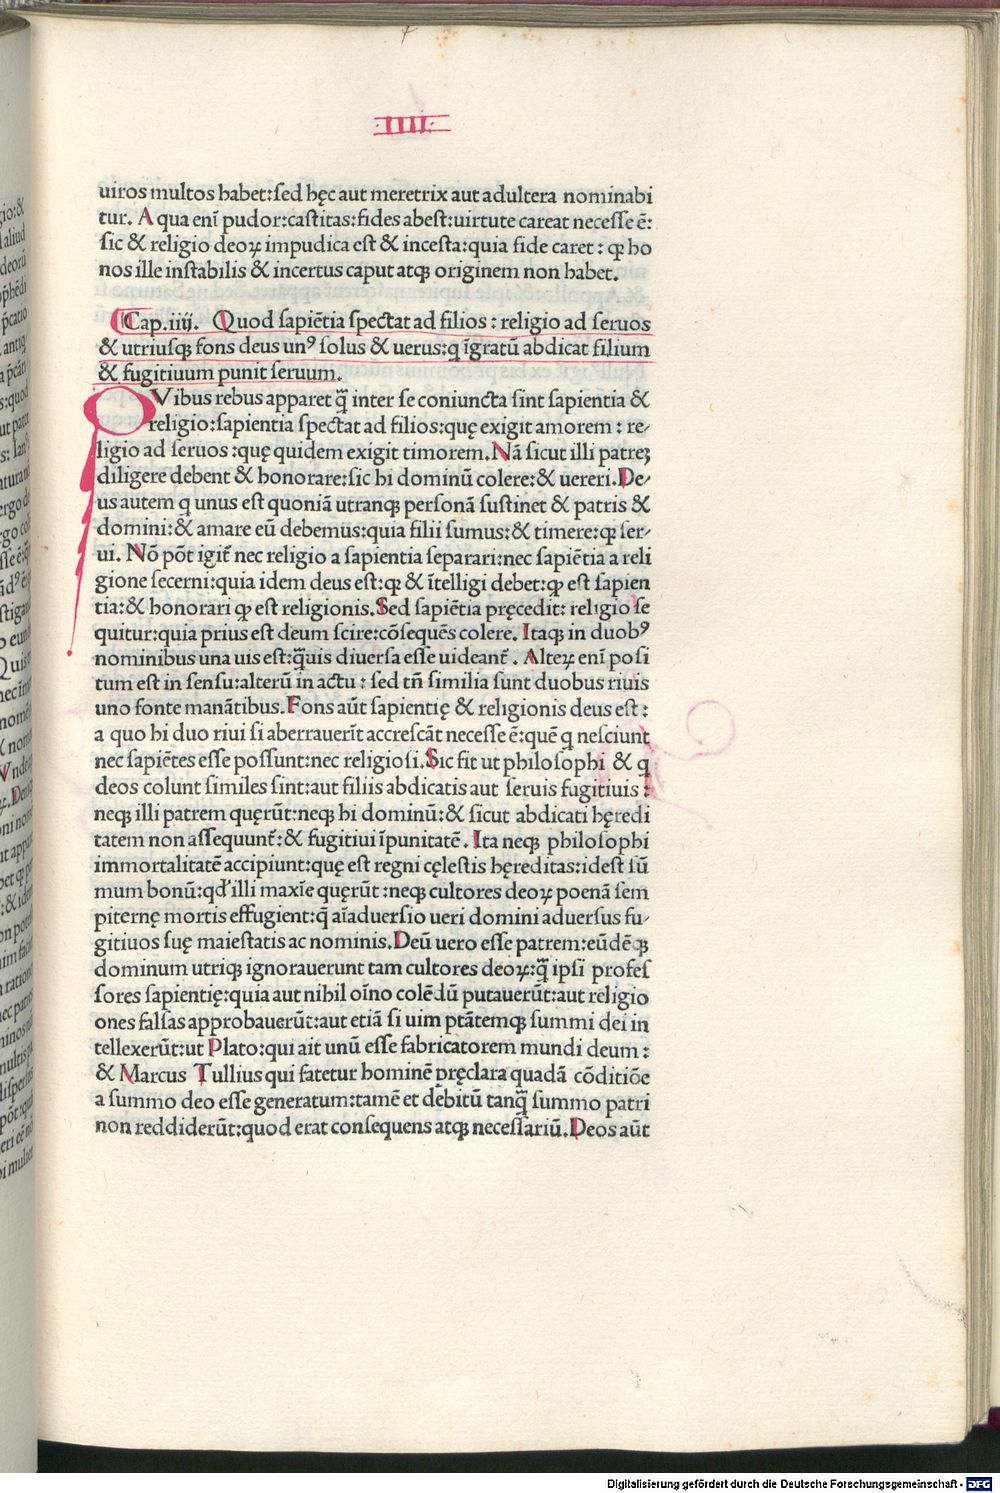 ·IIII·
uiros multos habet:sed hęc aut meretrix aut adultera nominabi
tur. A qua eni᷒ pudor:castitas:fides abest:uirtute careat necesse ē:
sic & religio deoꝝ impudica est & incesta:quia fide caret : ꝙ ho
nos ille instabilis & incertus caput atqꝫ originem non habet.
Cap.iiij. Quod sapiētia spectat ad filios : religio ad seruos
& utriusqꝫ fons deus unꝰ solus & uerus:q īgratū abdicat filium
& fugitiuum punit seruum.
QVibus rebus apparet q̄ inter se coniuncta sint sapientia &
religio:sapientia spectat ad filios:quę exigit amorem : re-
ligio ad seruos :quę quidem exigit timorem.Nā sicut illi patreꝫ
diligere debent & honorare:sic hi dominū colere:& uereri.De-
us autem q unus est quoniā utranqꝫ personā sustinet & patris &
domini:& amare eū debemus:quia filii sumus:& timere:ꝙ ser-
ui. Nō pōt igit̄ nec religio a sapientia separari:nec sapiētia a reli
gione secerni:quia idem deus est:ꝙ & ītelligi debet:ꝙ est sapien
tia:& honorari ꝙ est religionis.Sed sapiētia pręcedit: religio se
quitur:quia prius est deum scire:cōsequēs colere. Itaqꝫ in duobꝰ
nominibus una uis est:q̄uis diuersa esse uideant̄ . Alteꝝ enī posi
tum est in sensu:alterū in actu : sed tn̄ similia sunt duobus riuis
uno fonte manātibus.Fons aūt sapientię & religionis deus est :
a quo hi duo riui si aberrauerīt accrescāt necesse ē:quē q nesciunt
nec sapiētes esse possunt:nec religiosi.Sic fit ut philosophi & q
deos colunt similes sint:aut filiis abdicatis aut seruis fugitiuis :
neqꝫ illi patrem quęrūt:neqꝫ hi dominū:& sicut abdicati hęredi
tatem non assequunt̄:& fugitiui īpunitatē . Ita neqꝫ philosophi
immortalitatē accipiunt:quę est regni cęlestis hęreditas:idest sū
mum bonū:qđ illi maxīe quęrūt :neqꝫ cultores deoꝝ poenā sem
piternę mortis effugient:q̄ aīaduersio ueri domini aduersus fu-
gitiuos suę maiestatis ac nominis.Deū uero esse patrem:eūdēqꝫ
dominum utriqꝫ ignorauerunt tam cultores deoꝝ:q̄ ipsi profes
sores sapientię:quia aut nihil oīno colēdū putauerūt:aut religio
ones falsas approbauerūt:aut etiā si uim ptātemqꝫ summi dei in
tellexerūt:ut Plato:qui ait unū esse fabricatorem mundi deum :
& Marcus Tullius qui fatetur hominē p̄ręclara quadā cōditiōe
a summo deo esse generatum:tamē et debitū tanq̄ summo patri
non reddiderūt:quod erat consequens atqꝫ necessariū.Deos aūt
Digitalisierung gefördert durch die Deutsche Forschungsgemeinschaft - DFG